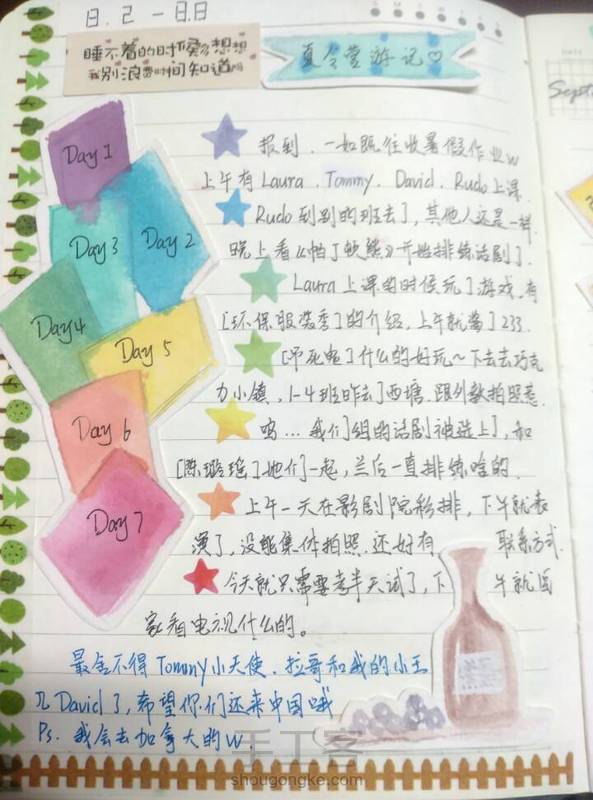 8.2-8.8
睡不着的时候多想想
我别浪费时间知道吗
夏令营游记♡
Day 1
Day 3
Day 2
Day 4
Day 5
Day 6
Day 7
报到，一如既往收暑假作业w
上午有Laura、Tommy、David、Rudo上课
Rudo到别的班去了，其他人还是一样
晚上看《帕丁顿熊》开始排练话剧了
Laura上课的时候玩了游戏，有
[环保服装秀]的介绍，上午就酱了233
[吊死鬼]什么的好玩~下去去巧克
力小镇，1-4班昨去了西塘，跟外教拍照惹
呜…我们组的话剧被选上了，和
她们一起，兰后一直排练啥的
上午一天在影剧院彩排，下午就表
演了，没能集体拍照，还好有 联系方式
今天就只需要考半天试了，下 午就回
家看电视什么的。
最舍不得Tommy小天使、拉哥和我的小王
儿David了，希望你们还来中国哦
Ps. 我会去加拿大的w
DATE
Sept
手工客
shougongke.com